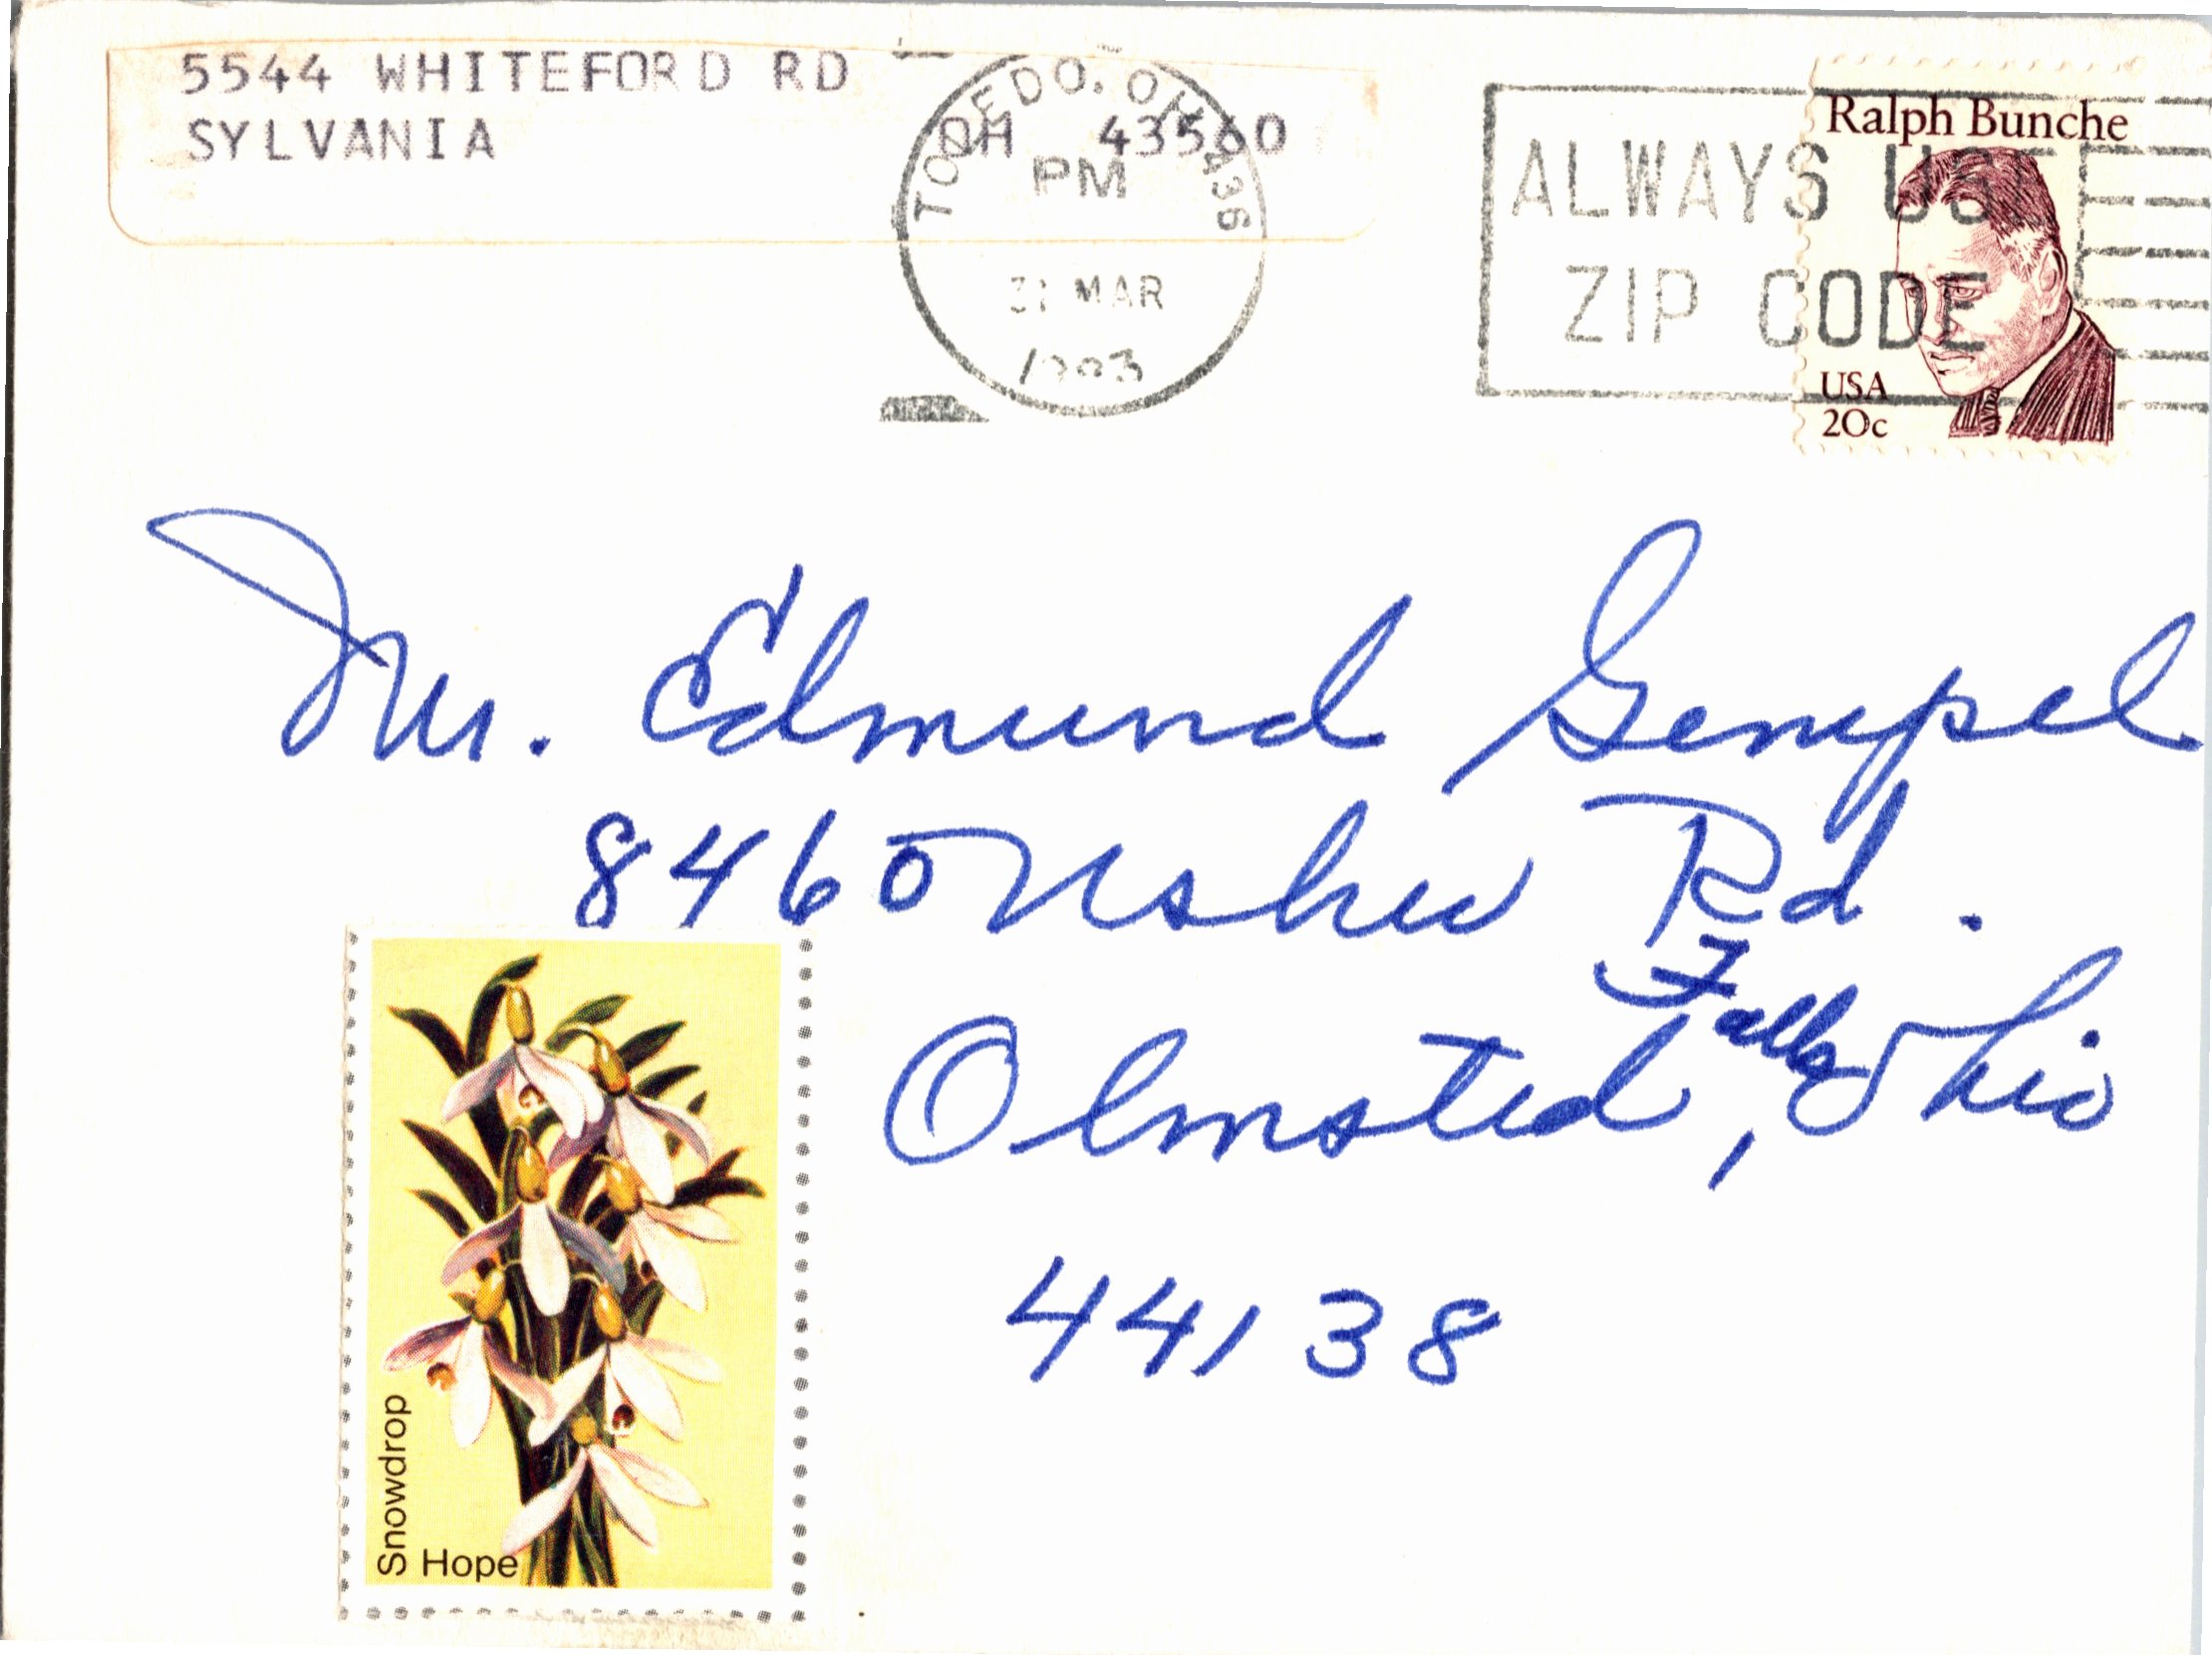 5544 WHITEFORD RD
SYLVANIA OH 43560
TOLEDO, OH 436
PM
31 MAR
1983
ALWAYS USE
ZIP CODE
Ralph Bunche
USA
20c
Mr. Edmund Gempel
8460 Usher Rd.
Olmsted Falls, Ohio
44138
Snowdrop
Hope